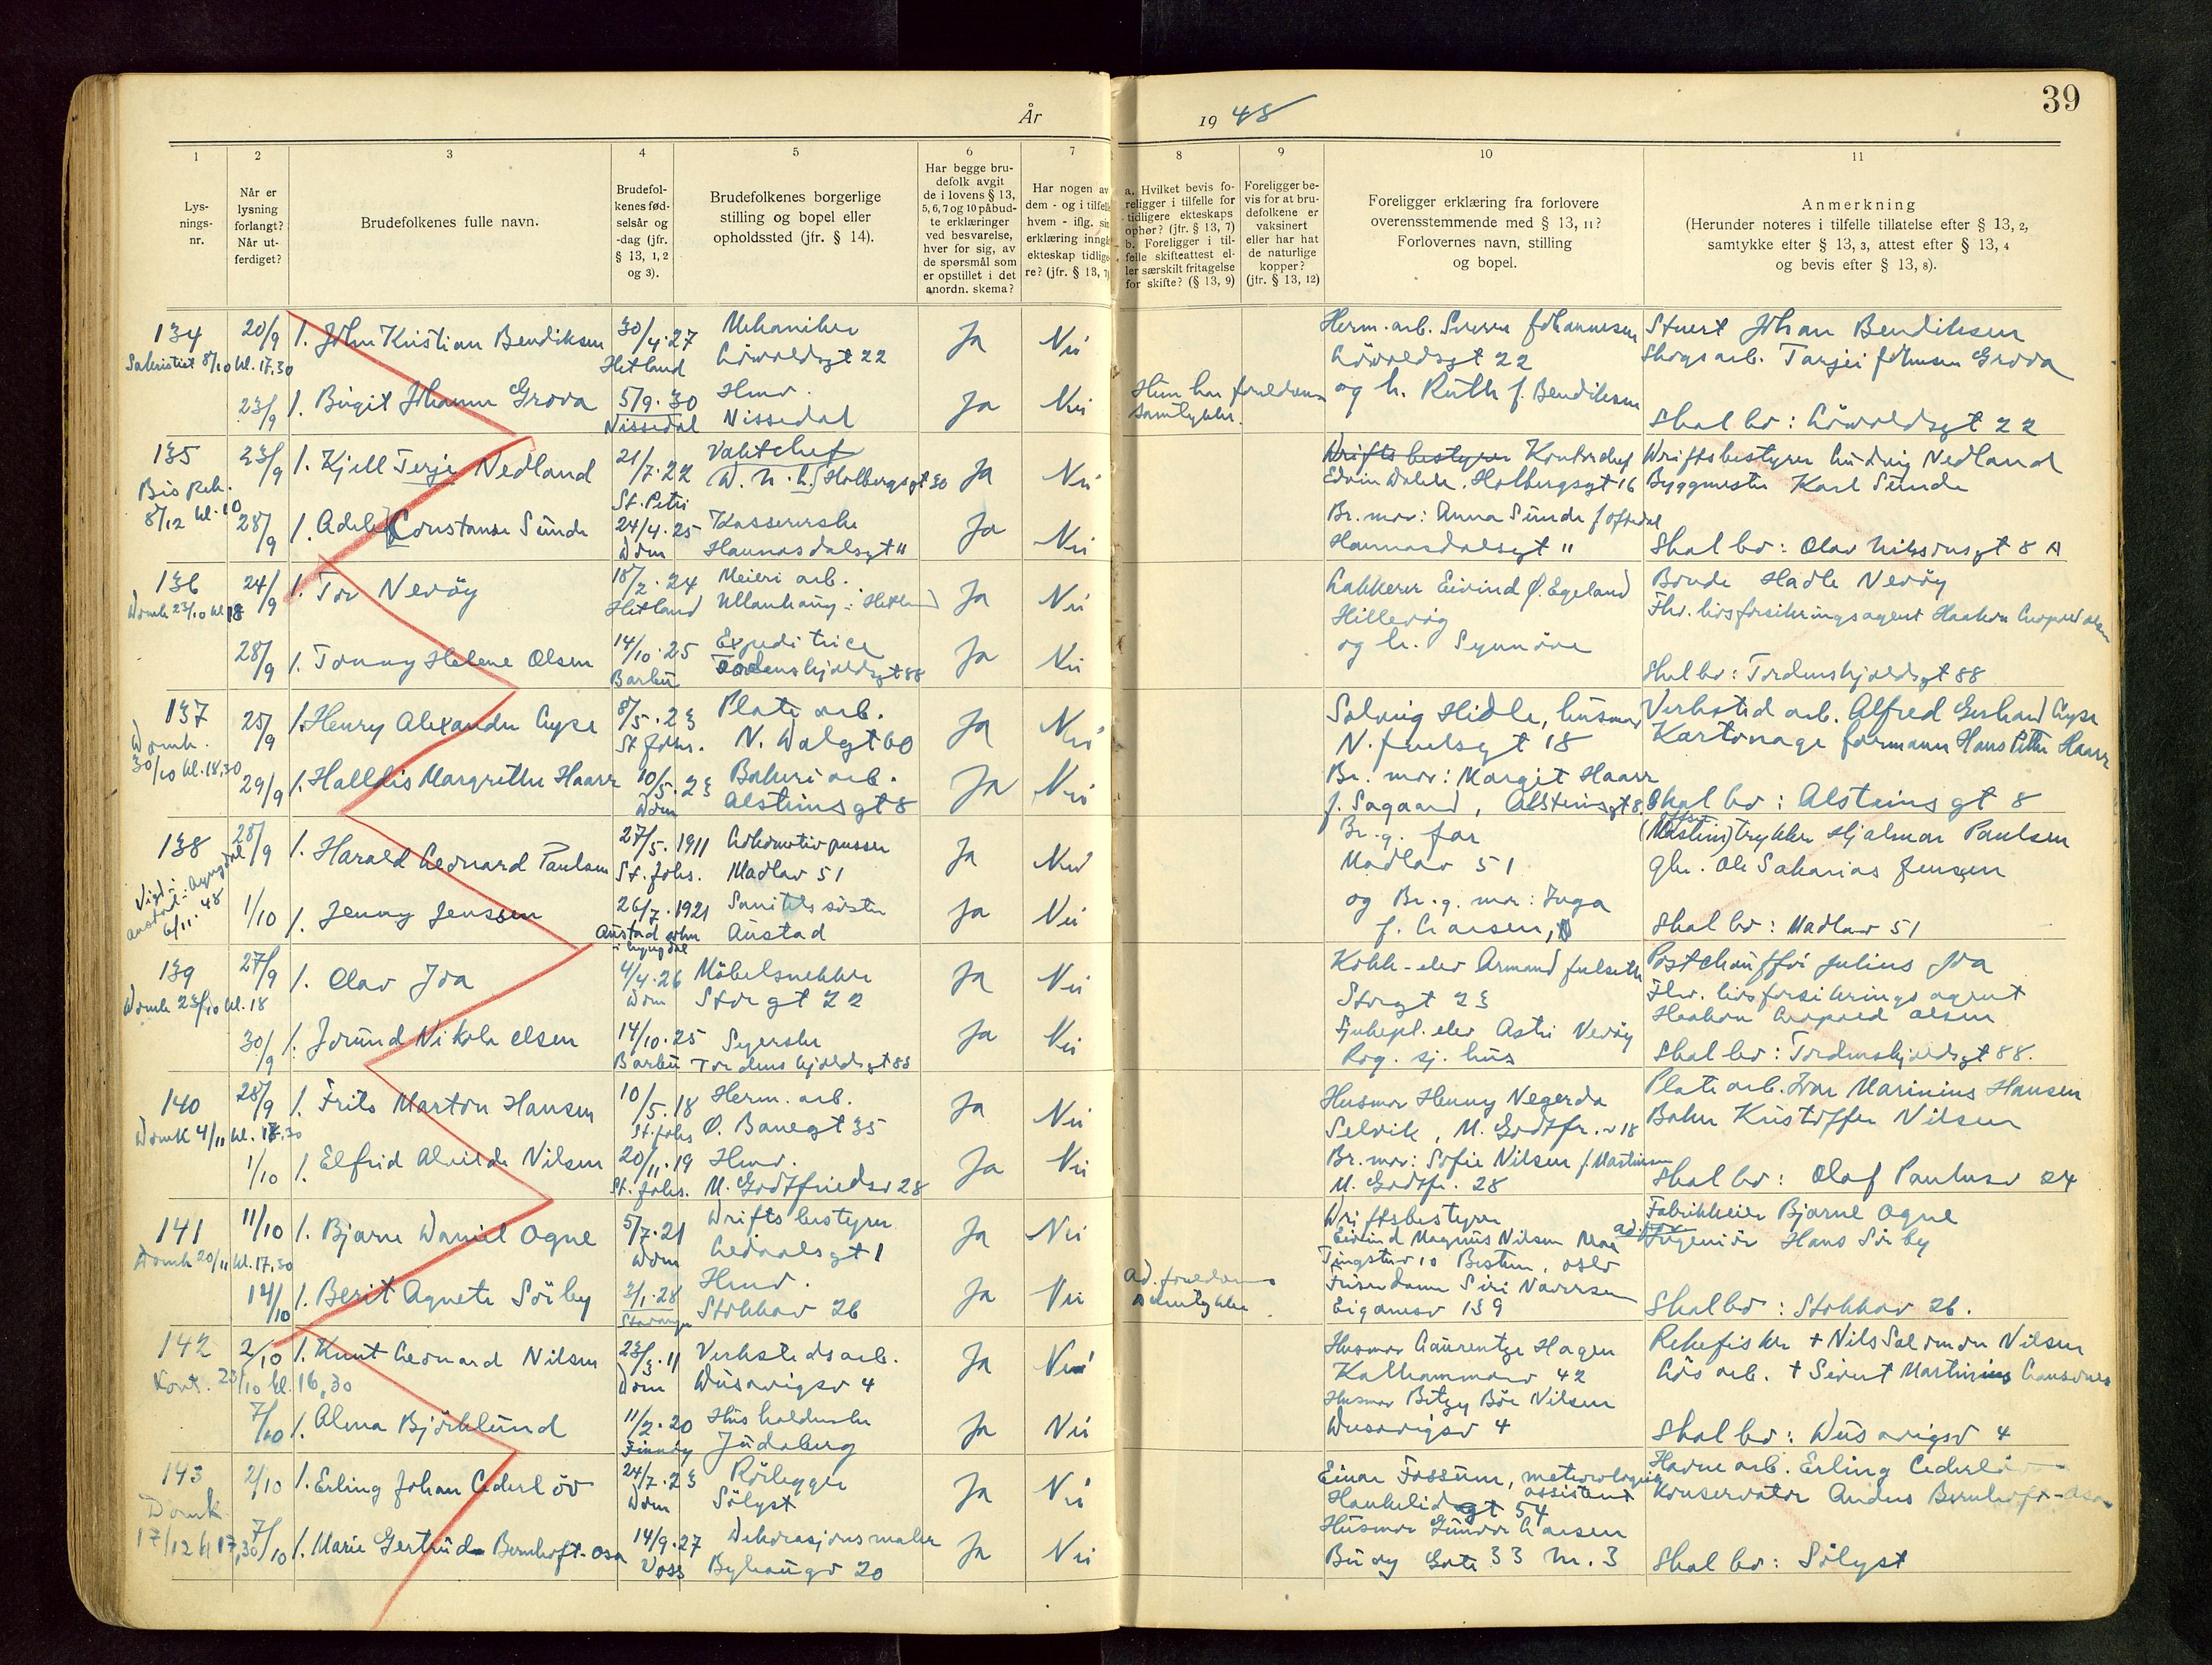 39
År 1948
1
2
3
4
5
6
7
8
9
10
11
Lys-
nings-
nr.
Når er
lysning
forlangt?
Når ut-
ferdiget?
Brudefolkenes fulle navn.
Brudefol-
kenes fød-
selsår og
-dag (jfr.
§ 13, 1, 2
og 3).
Brudefolkenes borgerlige
stilling og bopel eller
opholdssted (jfr. § 14).
Har begge bru-
defolk avgit
de i lovens § 13,
5, 6, 7 og 10 påbud-
te erklæringer
ved besvarelse,
hver for sig, av
de spørsmål som
er opstillet i det
anordn. skema?
Har nogen av
dem - og i tilfelle
hvem - iflg. sin
erklæring inngått
ekteskap tidlige-
re? (jfr. § 13, 7)
a. Hvilket bevis fo-
religger i tilfelle for
tidligere ekteskaps
ophør? (jfr. § 13, 7)
b. Foreligger i til-
felle skifteattest el-
ler særskilt fritagelse
for skifte? (§ 13, 9)
Foreligger be-
vis for at bru-
defolkene er
vaksinert
eller har hat
de naturlige
kopper?
(jfr. § 13, 12)
Foreligger erklæring fra forlovere
overensstemmende med § 13, 11?
Forlovernes navn, stilling
og bopel.
Anmerkning
(Herunder noteres i tilfelle tillatelse efter § 13, 2,
samtykke efter § 13, 3, attest efter § 13, 4
og bevis efter § 13, 8).
134
Sakristiet 8/10 kl. 17.30
20/9 1. John Kristian Bendiksen
30/4.27
Hetland
Mekaniker
Løwoldsgt 22
Ja Nei
Herm. arb. Sverre Johannesen
Løwoldsgt 22
Stuert Johan Bendiksen
Skogsarb. Tarjei Johnsen Grova
23/9 1. Birgit Johanne Grova
5/9.30
Nissedal
Hmv.
Nissedal
Ja Nei
Hun har foreldrenes
samtykke.
og h. Ruth f. Bendiksen
Skal bo: Løwoldsgt 22
135
Bispek.
8/12 kl. 10
23/9 1. Kjell Terje Nedland
21/7.22
St. Petri
Vaktchef
D.N.L. Holbergsgt 30
Ja Nei
Driftsbestyrer Kontorchef
Holbergsgt 16
Driftsbestyrer Ludvig Nedland
Byggmester Karl Sunde
28/9 1. Adele Constanse Sunde
24/4.25
Dom
Kassererske
Haunasdalsgt 11
Ja Nei
Br. mor: Anna Sunde f. Oftedal
Haunasdalsgt 11
Skal bo: Olav Nilsonsgt 8 A
136
Domk 23/10 kl 18
24/9 1. Tor Nevøy
18/2.24
Hetland
Meieri arb.
Ullanhaug i Hetland
Ja Nei
Lakkerer Eivind Ø. Egeland
Hillevåg
Bonde Hadle Nevøy
Fhv. livsforsikringsagent Haakon Leopold Olsen
28/9 1. Tonny Helene Olsen
14/10.25
Barbu
Expeditrice
Tordenskjoldsgt 88
Ja Nei
og h. Synnøve
Skal bo: Tordenskjoldsgt 88
137
Domk.
30/10 kl. 18,30
25/9 1. Henry Alexander Gyse
8/5.23
St. Johs.
Plate arb.
N. Dalgt 60
Ja Nei
Solveig Hidle, husmor
N. Juelsgt 18
Verksted arb. Alfred Gerhard Gyse
Kartonage formann Hans Petter Haarr
29/9 1. Halldis Margrethe Haarr
10/5.23
Dom
Bakeri arb.
Alsteinsgt 8
Ja Nei
Br. mor: Margit Haarr
f. Sagaard, Alsteinsgt 8
Skal bo: Alsteinsgt 8
138
Austad i Lyngdal
6/11.48
28/9 1. Harald Leonard Paulsen
27/5.1911
St. Johs.
Lokomotivpusser
Madlav 51
Ja Nei
Br.g. far
Madlav 51
trykker Hjalmar Paulsen
Gbr. Ole Sakarias Jenssen
1/10 1. Jenny Jenssen
26/7.1921
Austad
i Lyngdal
Sanitetssøster
Austad
Ja Nei
og Br.g. mor: Inga
f. Larsen,
Skal bo: Madlav 51
139
Domk 23/10 kl. 18
27/9 1. Olav Joa
4/4.26
Dom
Møbelsnekker
Storgt 22
Ja Nei
Kokk-elev Armand Julseth
Storgt 23
Postchauffør Julius Joa
Fhv. livsforsikringsagent
Haakon Leopold Olsen
30/9 1. Jorund Nikole Olsen
14/10.25
Barbu
Syerske
Tordenskjoldsgt 88
Ja Nei
Sykepl. elev Astri Nevøy
Rog. sj. hus
Skal bo: Tordenskjoldsgt 88.
140
Domk 4/11 kl. 17.30
28/9 1. Frits Marton Hansen
10/5.18
St. Johs
Herm. arb.
Ø. Banegt 35
Ja Nei
Husmor Henny Vegerda
Selvik, M. Godtfr. v 18
Plate arb. Ivar Marinius Hansen
Baker Kristoffer Nilsen
1/10 1. Elfrid Alvilde Nilsen
20/11.19
St. Johs.
Hmv.
M. Godtfriedsv 28
Ja Nei
Br. mor: Sofie Nilsen f. Martinsen
M. Godtfr. 28
Skal bo: Olaf Paulusv 24
141
Domk 20/11 kl. 17,30
11/10 1. Bjarne Daniel Ogne
5/7.21
Dom
Driftsbestyrer
Ledaalsgt 1
Ja Nei
Driftsbestyrer
Eivind Magnus Nilsen
Tingstuv 10 Bestum, Oslo
Fabrikkeier Bjarne Ogne
ad. far
Ingeniør Hans Sørby
14/10 1. Berit Agnete Sörby
3/1.28
Stavanger
Hmv.
Stokkav 26
Ja Nei
Ad. foreldrenes
samtykke
Frisørdame Siri
Eiganesv 139
Skal bo: Stokkav 26.
142
Kont. 23/10 kl. 16,30
2/10 1. Knut Leonard Nilsen
23/3.11
Dom
Verkstedsarb.
Dusavigsv 4
Ja Nei
Husmor Laurentze Hagen
Kalhammarv 42
Rekefisker + Nils Salomon Nilsen
Løsarb. + Sivert Martinius
7/10 1. Alma Björklund
11/2.20
Finnøy
Husholderske
Judaberg
Ja Nei
Husmor Betzy Bøe Nilsen
Dusavigsv 4
Skal bo: Dusavigsv 4
143
Domk
17/12 kl 17,30
2/10 1. Erling Johan Cederlöv
24/7.23
Dom
Rørlegger
Sölyst
Ja Nei
Einar Fossum, meteorologisk
assistent
Haukeligt 54
Havnearb. Erling Cederlöv
Konservator Anders Bernhoft-Osa
7/10 1. Marie Gertrud Bernhoft-Osa
14/9.27
Voss
Dekorasjonsmaler
Byhaugv 20
Ja Nei
Husmor Gunvor Larsen
Buøy Gate 33 nr. 3
Skal bo: Sölyst